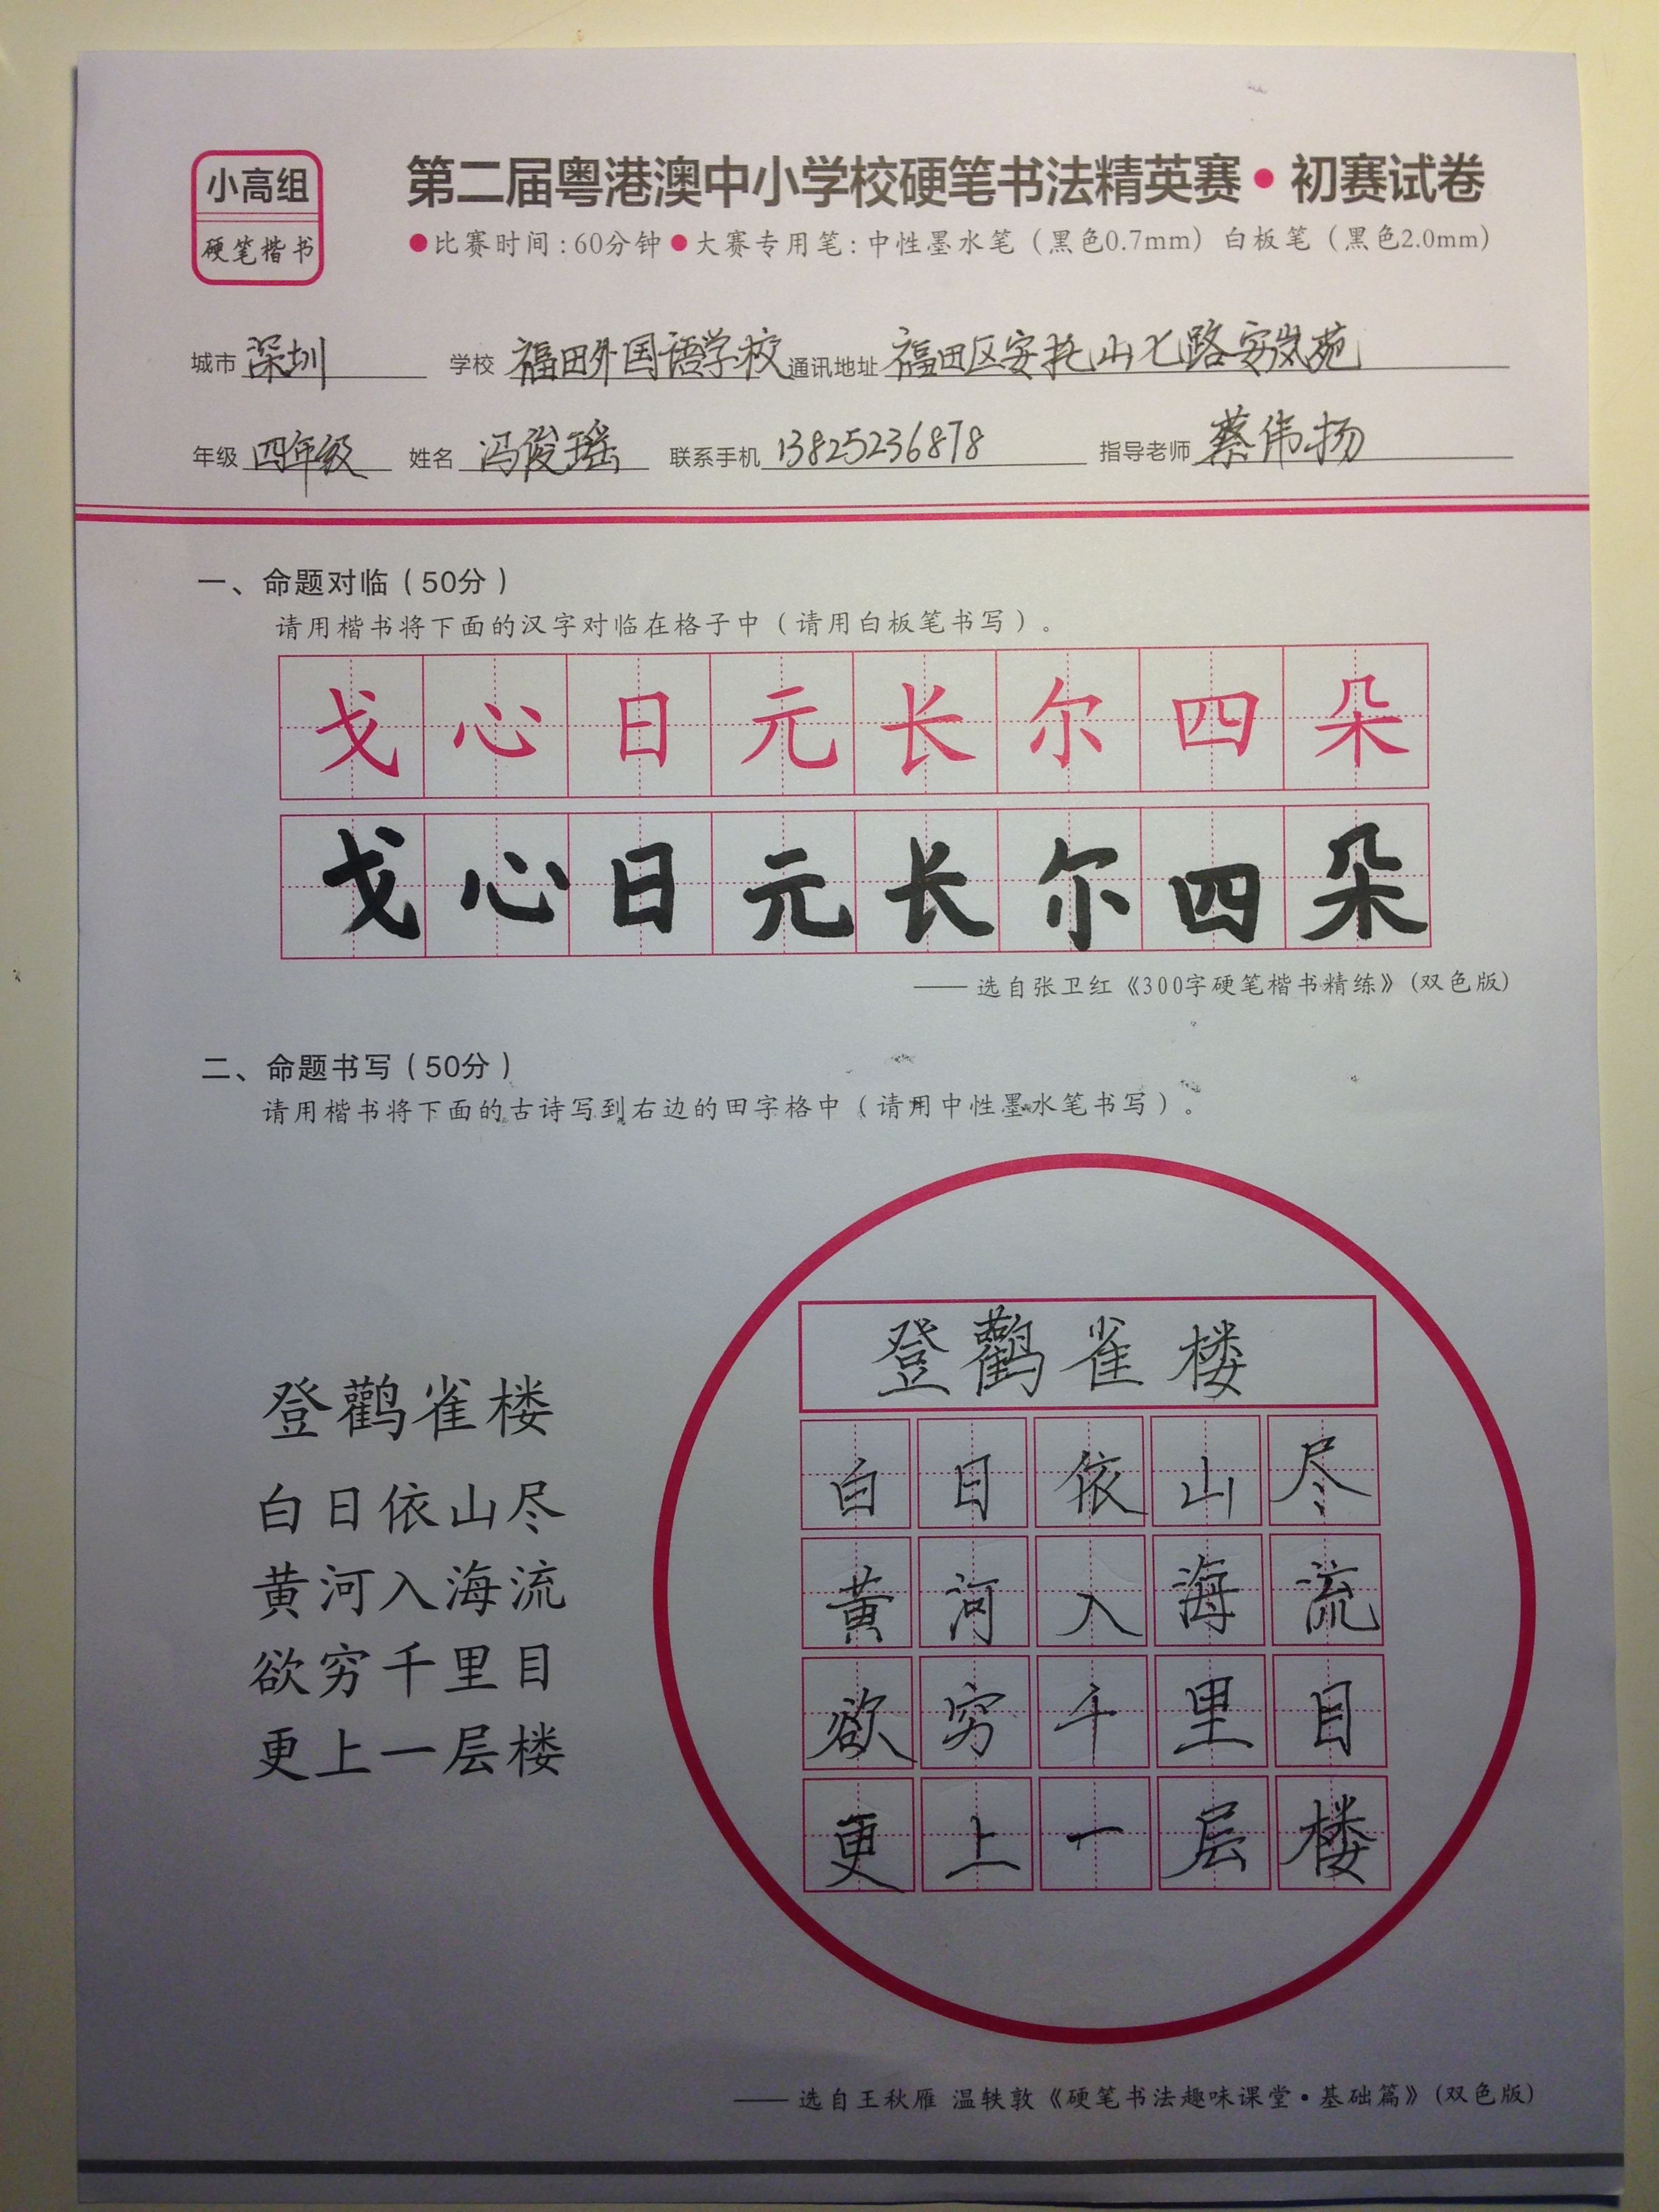 小高组
硬笔楷书
第二届粤港澳中小学校硬笔书法精英赛·初赛试卷
●比赛时间:60分钟●大赛专用笔:中性墨水笔（黑色0.7mm）白板笔（黑色2.0mm）
城市 深圳 学校 福田外国语学校 通讯地址 福田区安托山七路安岚苑
年级 四年级 姓名 冯俊瑶 联系手机 13825236878 指导老师 蔡伟扬
一、命题对临（50分）
请用楷书将下面的汉字对临在格子中（请用白板笔书写）。
戈心日元长尔四朵
戈心日元长尔四朵
——选自张卫红《300字硬笔楷书精练》(双色版)
二、命题书写（50分）
请用楷书将下面的古诗写到右边的田字格中（请用中性墨水笔书写）。
登鹳雀楼
白日依山尽
黄河入海流
欲穷千里目
更上一层楼
登鹳雀楼
白日依山尽
黄河入海流
欲穷千里目
更上一层楼
——选自王秋雁 温轶敦《硬笔书法趣味课堂·基础篇》(双色版)